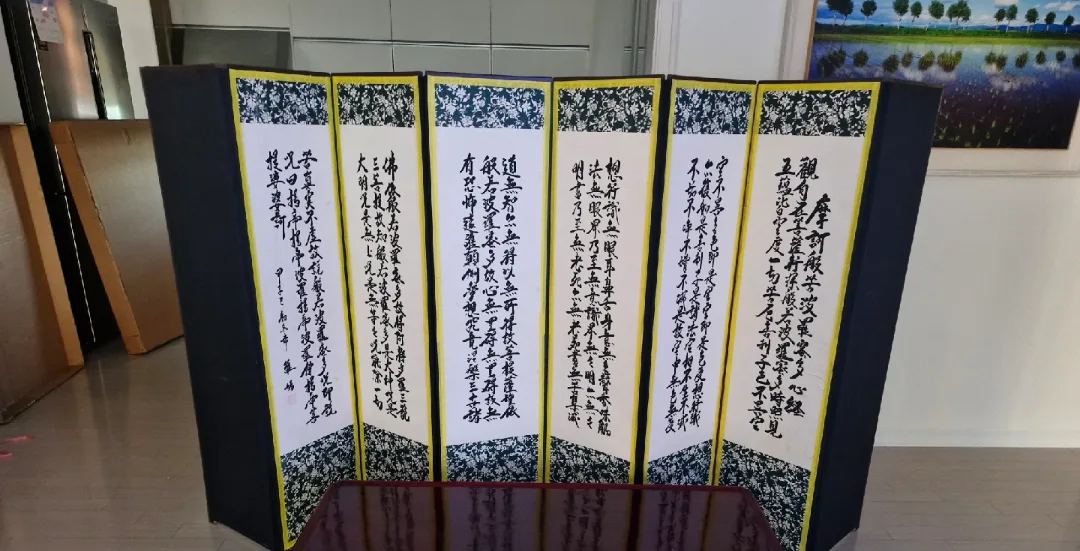 摩訶般若波羅蜜多心經
觀自在菩薩行深般若波羅蜜多時照見
五蘊皆空度一切苦厄舍利子色不異空
空不異色色即是空空即是色受想行識
亦復如是舍利子是諸法空相不生不滅
不垢不淨不增不減是故空中無色無受
想行識無眼耳鼻舌身意無色聲香味觸
法無眼界乃至無意識界無無明亦無無
明盡乃至無老死亦無老死盡無苦集滅
道無智亦無得以無所得故菩提薩埵依
般若波羅蜜多故心無罣礙無罣礙故無
有恐怖遠離顛倒夢想究竟涅槃三世諸
佛依般若波羅蜜多故得阿耨多羅三藐
三菩提故知般若波羅蜜多是大神呪是
大明呪是無上呪是無等等呪能除一切
苦真實不虛故說般若波羅蜜多呪即說
呪曰揭帝揭帝波羅揭帝波羅僧揭帝菩
提娑婆訶